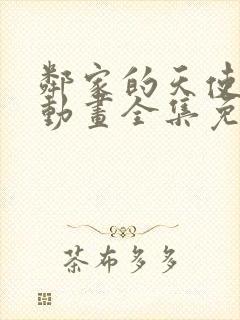 鄰家的天使
動畫全集免
茶布多多